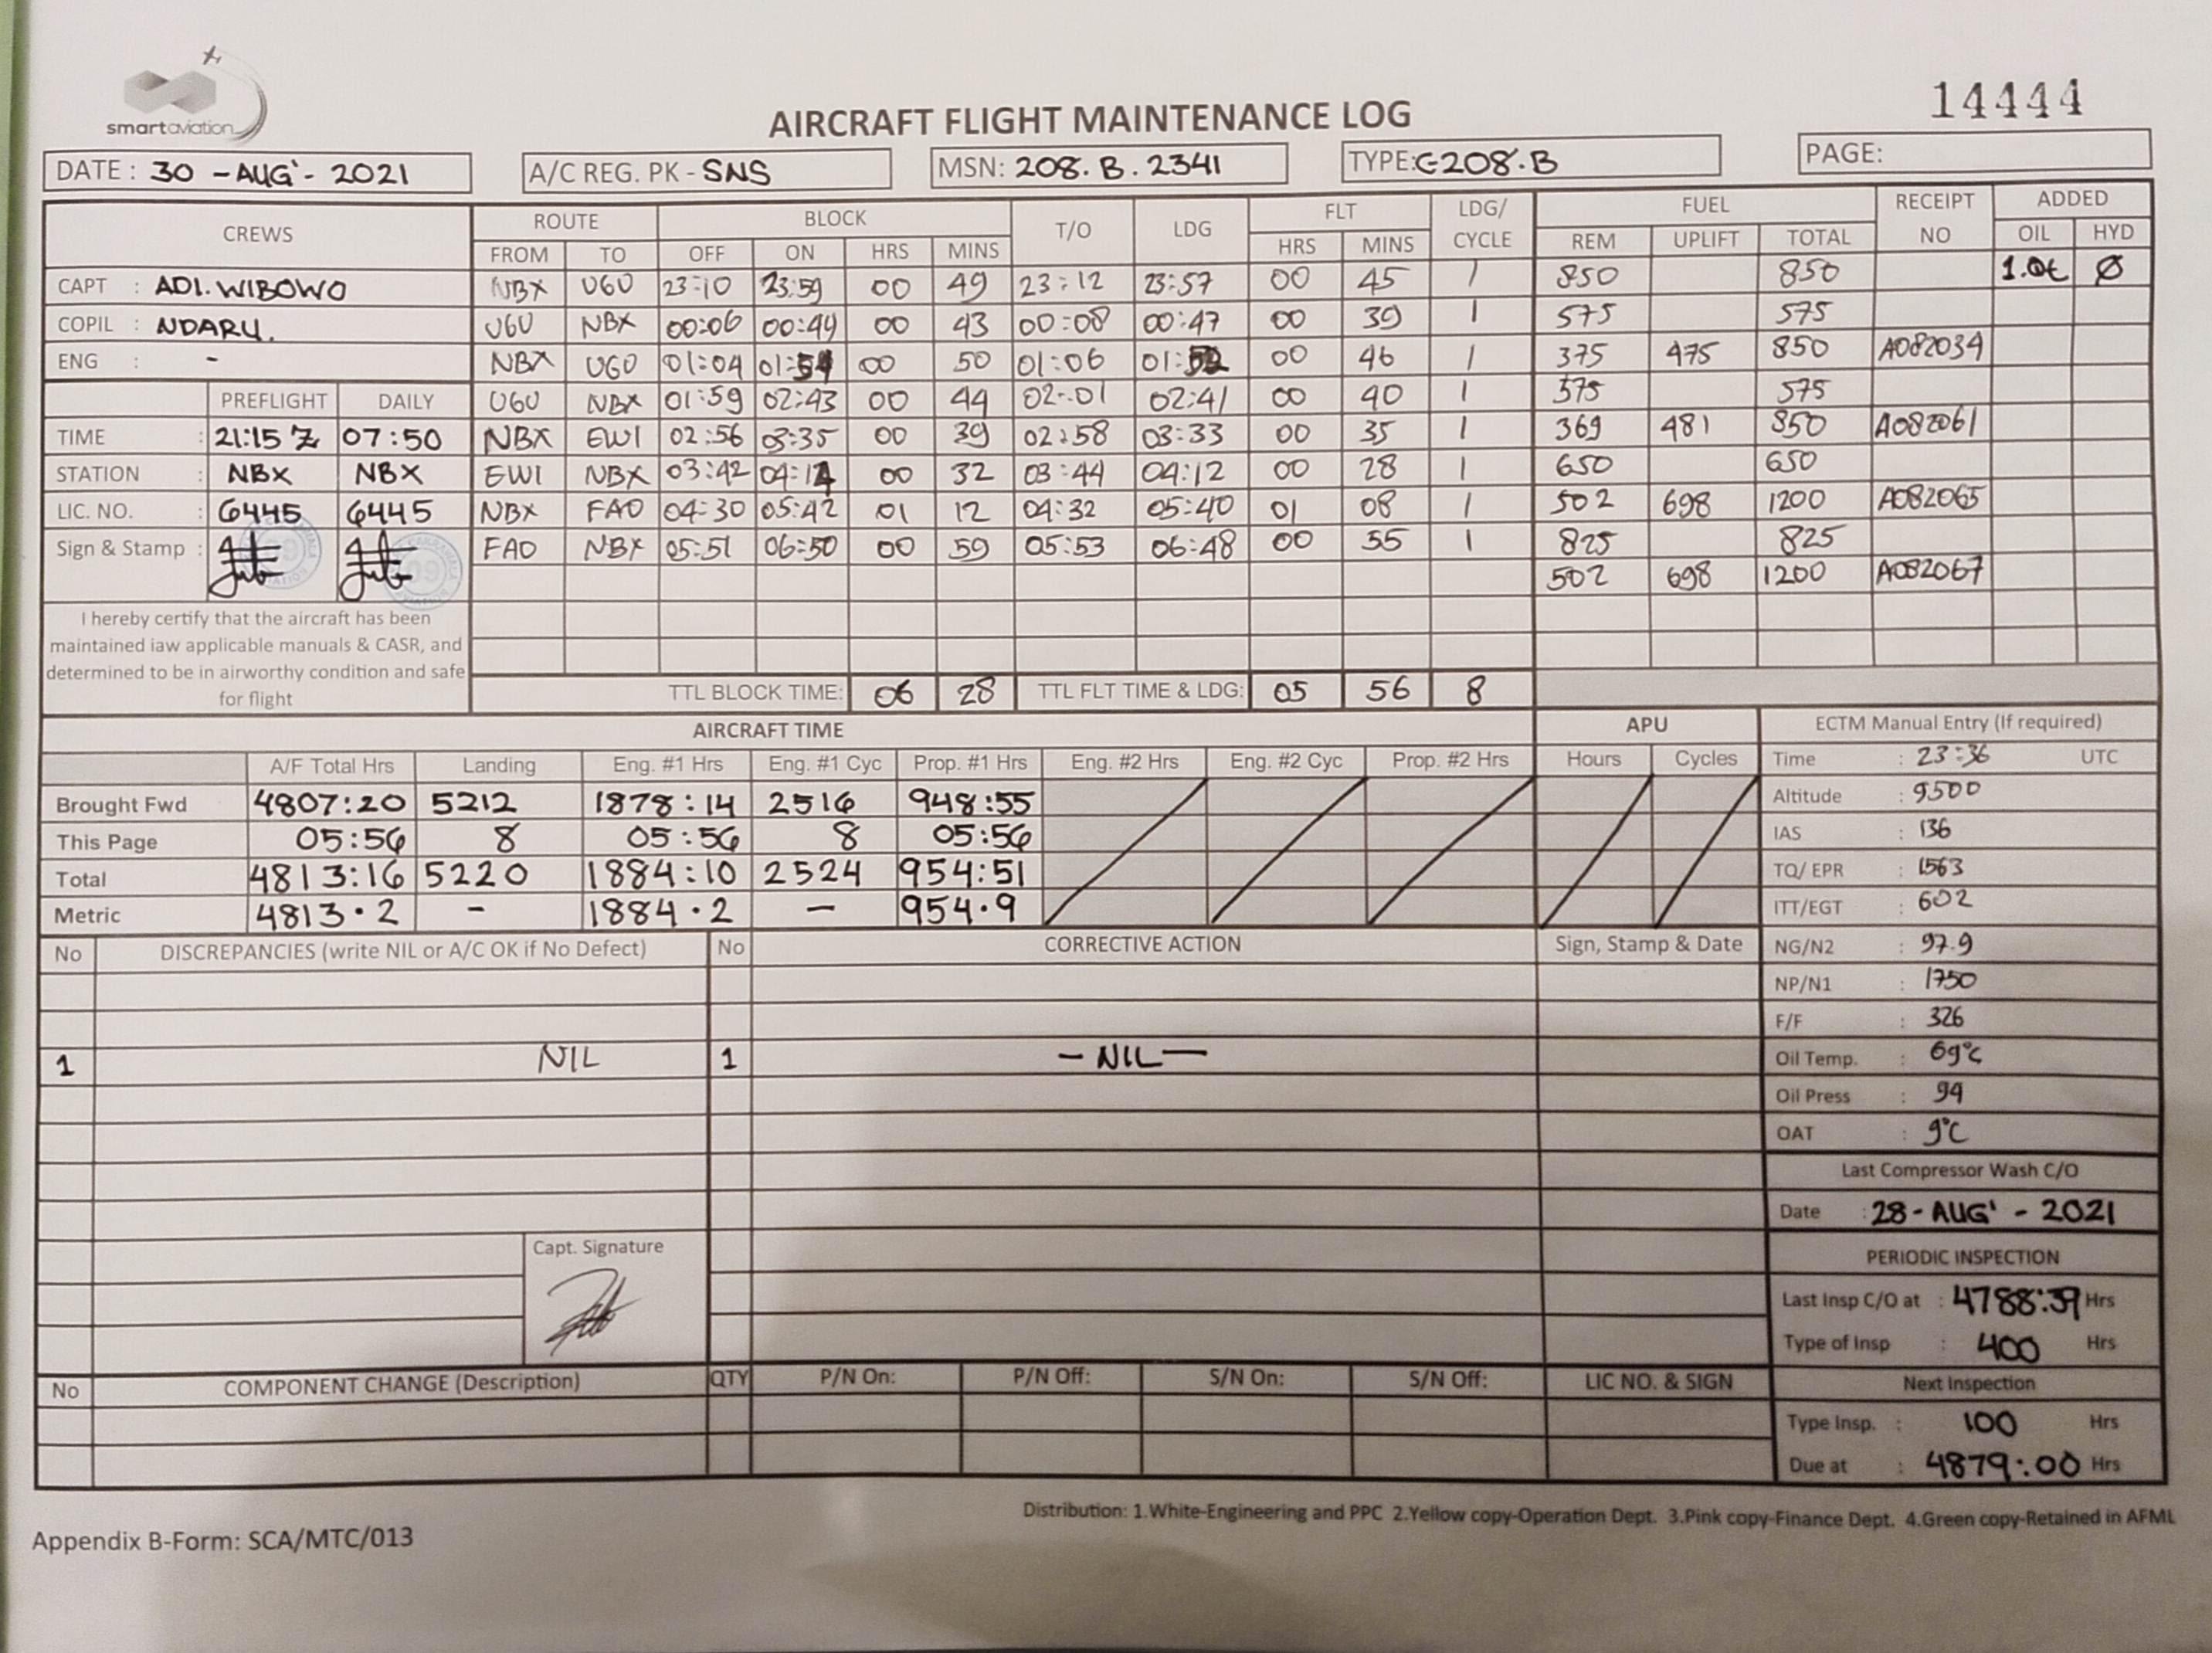 smartaviation
14444
AIRCRAFT FLIGHT MAINTENANCE LOG
DATE : 30 - AUG' - 2021 A/C REG. PK - SNS MSN: 208. B. 2341 TYPE: C-208. B PAGE:
CREWS ROUTE BLOCK T/O LDG FLT LDG/ CYCLE FUEL RECEIPT NO ADDED
FROM TO OFF ON HRS MINS HRS MINS REM UPLIFT TOTAL OIL HYD
CAPT : ADI. WIBOWO NBX UGU 23:10 23:59 00 49 23:12 23:57 00 45 1 850 850 1.Qt Ø
COPIL : NDARU. UGU NBX 00:06 00:49 00 43 00:08 00:47 00 39 1 575 575
ENG : - NBX UGU 01:04 01:54 00 50 01:06 01:52 00 46 1 375 475 850 A082034
PREFLIGHT DAILY UGU NBX 01:59 02:43 00 44 02:01 02:41 00 40 1 575 575
TIME : 21:15 Z 07:50 NBX EWI 02:56 03:35 00 39 02:58 03:33 00 35 1 369 481 850 A082061
STATION : NBX NBX EWI NBX 03:42 04:14 00 32 03:44 04:12 00 28 1 650 650
LIC. NO. : 6445 6445 NBX FAO 04:30 05:42 01 12 04:32 05:40 01 08 1 502 698 1200 A082065
Sign & Stamp : FAO NBX 05:51 06:50 00 59 05:53 06:48 00 55 1 825 825
502 698 1200 A082067
I hereby certify that the aircraft has been
maintained iaw applicable manuals & CASR, and
determined to be in airworthy condition and safe
for flight
TTL BLOCK TIME: 06 28 TTL FLT TIME & LDG: 05 56 8
AIRCRAFT TIME APU ECTM Manual Entry (If required)
A/F Total Hrs Landing Eng. #1 Hrs Eng. #1 Cyc Prop. #1 Hrs Eng. #2 Hrs Eng. #2 Cyc Prop. #2 Hrs Hours Cycles Time : 23:36 UTC
Brought Fwd 4807:20 5212 1878:14 2516 948:55 Altitude : 9500
This Page 05:56 8 05:56 8 05:56 IAS : 136
Total 4813:16 5220 1884:10 2524 954:51 TQ/ EPR : 1563
Metric 4813.2 - 1884.2 - 954.9 ITT/EGT : 602
No DISCREPANCIES (write NIL or A/C OK if No Defect) No CORRECTIVE ACTION Sign, Stamp & Date NG/N2 : 97.9
NP/N1 : 1750
F/F : 326
1 NIL 1 - NIL - Oil Temp. : 69°C
Oil Press : 94
OAT : 9°C
Last Compressor Wash C/O
Date : 28 - AUG' - 2021
Capt. Signature PERIODIC INSPECTION
Last Insp C/O at : 4788:39 Hrs
Type of Insp : 400 Hrs
No COMPONENT CHANGE (Description) QTY P/N On: P/N Off: S/N On: S/N Off: LIC NO. & SIGN Next Inspection
Type Insp. : 100 Hrs
Due at : 4879:00 Hrs
Distribution: 1.White-Engineering and PPC 2.Yellow copy-Operation Dept. 3.Pink copy-Finance Dept. 4.Green copy-Retained in AFML
Appendix B-Form: SCA/MTC/013